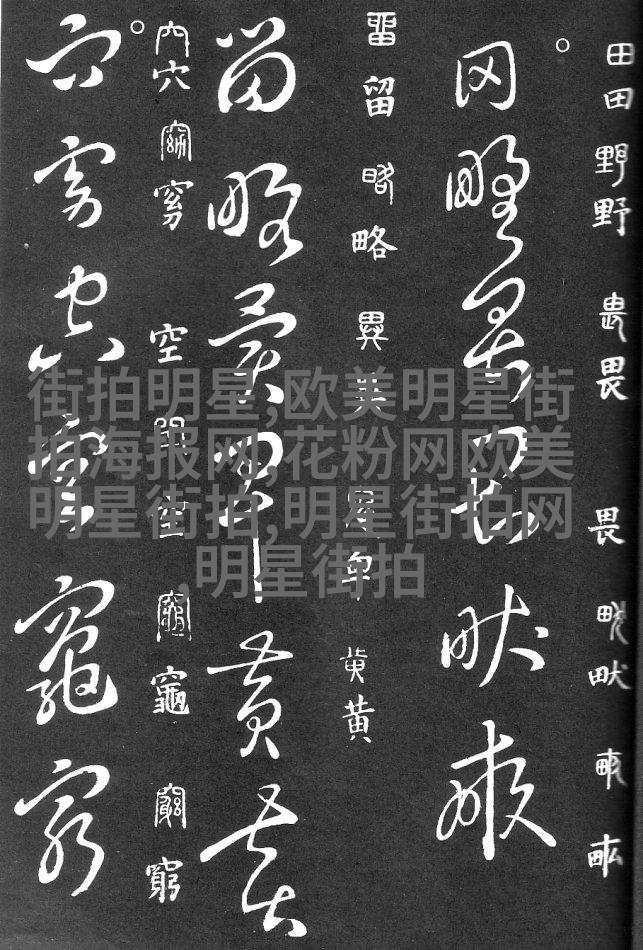 田田野野畏畏畏畎畎畝
田野畏畏畎畝
畱留略略異異畢黄黄
留略異畢黄
穴穴窈空空竈竈窮窮
穴窈空竈窮
街拍明星,欧美明星街
拍海报网,花粉网欧美
明星街拍,明星街拍网
,明星街拍